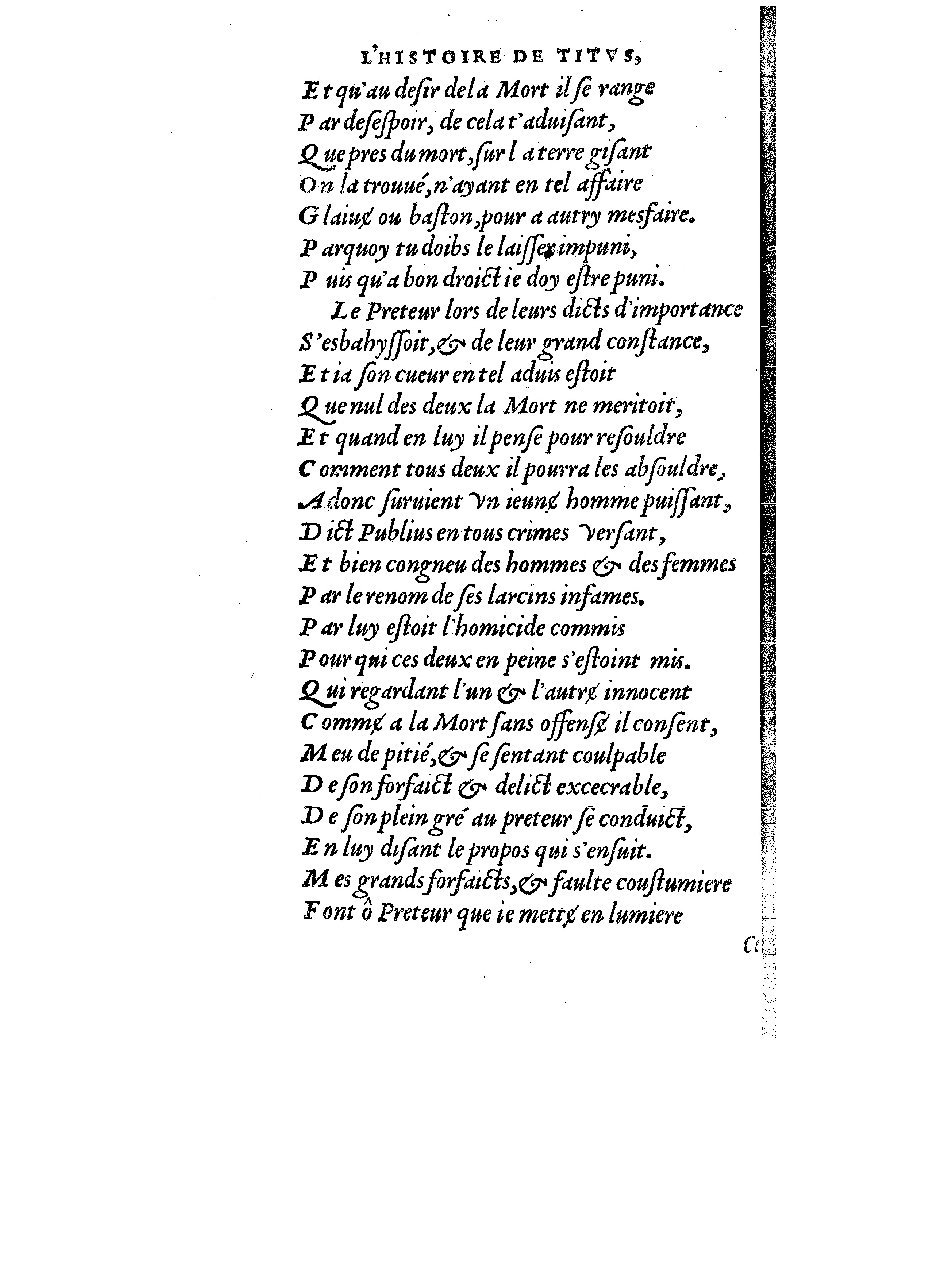 L'HISTOIRE DE TITVS,
Et qu'au deſir de la Mort il ſe range
Par deſeſpoir, de cela t'aduiſant,
Que pres du mort, ſur la terre giſant
On la trouué, n'ayant en tel affaire
Glaiuɇ ou baſton, pour a autry mesfaire.
Parquoy tu doibs le laiſſer impuni,
Puis qu'a bon droict ie doy eſtre puni.
Le Preteur lors de leurs dicts d'importance
S'esbahyſſoit, & de leur grand conſtance,
Et ia ſon cueur en tel aduis eſtoit
Que nul des deux la Mort ne meritoit,
Et quand en luy il penſe pour reſouldre
Comment tous deux il pourra les abſouldre,
Adonc ſuruient vn ieunɇ homme puiſſant,
Dict Publius en tous crimes verſant,
Et bien congneu des hommes & des femmes
Par le renom de ſes larcins infames.
Par luy eſtoit l'homicide commis
Pour qui ces deux en peine s'eſtoint mis.
Qui regardant l'un & l'autrɇ innocent
Commɇ a la Mort ſans offenſɇ il conſent,
Meu de pitié, & ſe ſentant coulpable
De ſon forfaict & delict excecrable,
De ſon plein gré au preteur ſe conduict,
En luy diſant le propos qui s'enſuit.
Mes grands forfaicts, & faulte couſtumiere
Font ô Preteur que ie mettɇ en lumiere
Ce